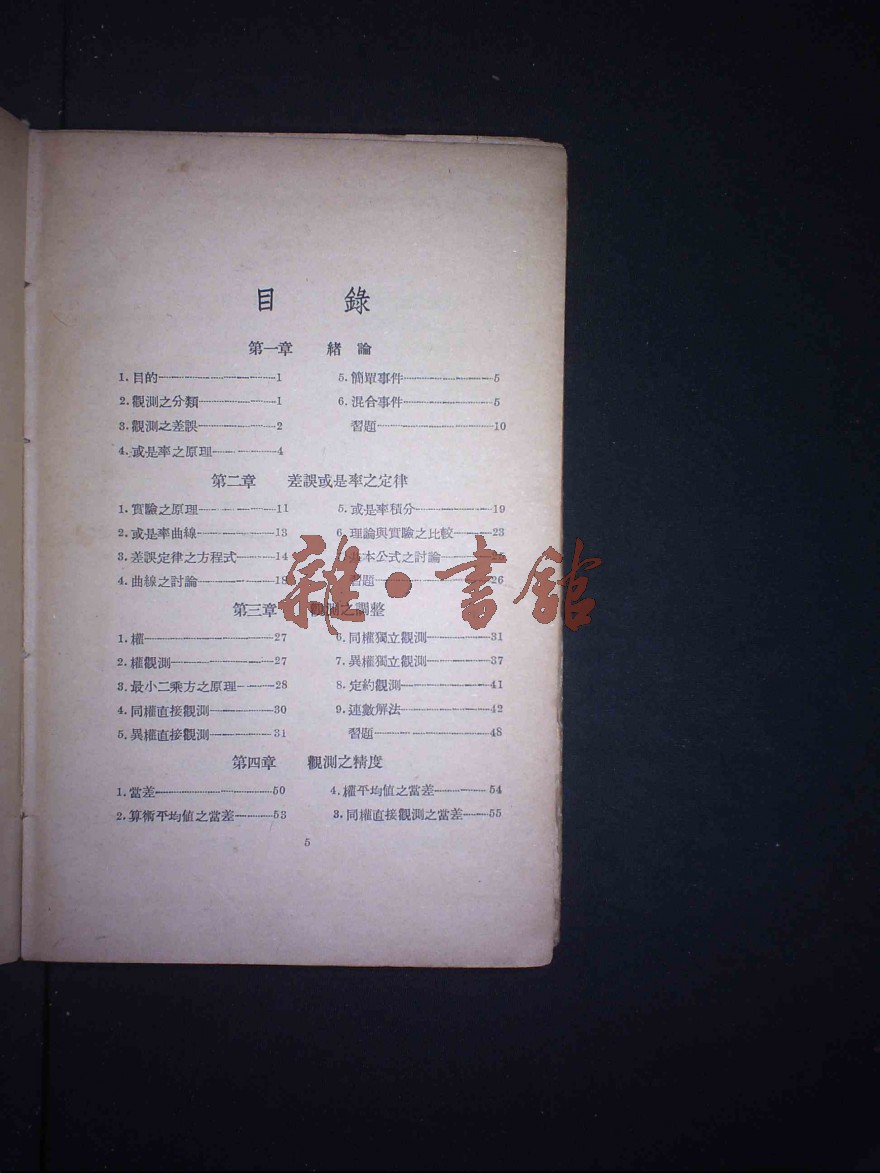 目 錄
第一章 緒論
1. 目的 1
2. 觀測之分類 1
3. 觀測之差誤 2
4. 或是率之原理 4
5. 簡單事件 5
6. 混合事件 5
習題 10
第二章 差誤或是率之定律
1. 實驗之原理 11
2. 或是率曲線 13
3. 差誤定律之方程式 14
4. 曲線之討論 18
5. 或是率積分 19
6. 理論與實驗之比較 23
本公式之討論 25
習題 26
第三章 觀測之調整
1. 權 27
2. 權觀測 27
3. 最小二乘方之原理 28
4. 同權直接觀測 30
5. 異權直接觀測 31
6. 同權獨立觀測 31
7. 異權獨立觀測 37
8. 定約觀測 41
9. 連數解法 42
習題 48
第四章 觀測之精度
1. 當差 50
2. 算術平均值之當差 53
4. 權平均值之當差 54
3. 同權直接觀測之當差 55
5
雜·書館